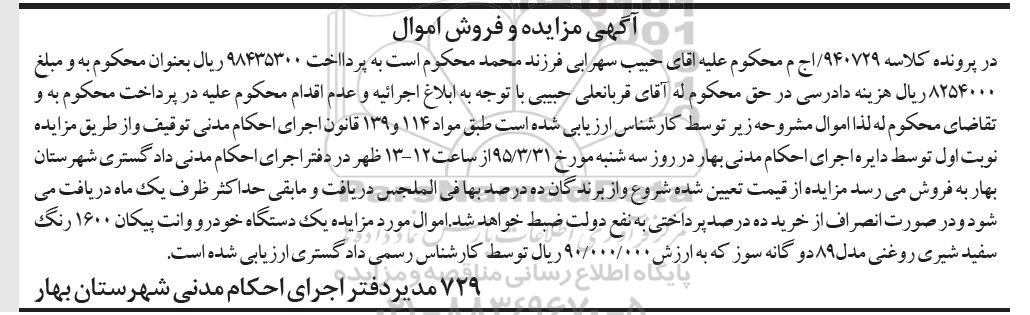 آگهی مزایده و فروش اموال
در پرونده کلاسه ۹۴۰۷۲۹/اج م محکوم علیه اقای حبیب سهرابی فرزند محمد محکوم است به پرداخت ۹۸۴۳۵۳۰۰ ریال بعنوان محکوم به و مبلغ
۸۲۵۴۰۰۰ ریال هزینه دادرسی در حق محکوم له آقای قربانعلی حبیبی با توجه به ابلاغ اجرائیه و عدم اقدام محکوم علیه در پرداخت محکوم به و
تقاضای محکوم له لذا اموال مشروحه زیر توسط کارشناس ارزیابی شده است طبق مواد ۱۱۴ و ۱۳۹ قانون اجرای احکام مدنی توقیف واز طریق مزایده
نوبت اول توسط دایره اجرای احکام مدنی بهار در روز سه شنبه مورخ ۹۵/۳/۳۱ از ساعت ۱۲-۱۳ ظهر در دفتر اجرای احکام مدنی دادگستری شهرستان
بهار به فروش می رسد مزایده از قیمت تعیین شده شروع واز برندگان ده درصد بها فی الملجس دریافت و مابقی حداکثر ظرف یک ماه دریافت می
شود ودر صورت انصراف از خرید ده درصد پرداختی به نفع دولت ضبط خواهد شد.اموال مورد مزایده یک دستگاه خودرو وانت پیکان ۱۶۰۰ رنگ
سفید شیری روغنی مدل ۸۹ دو گانه سوز که به ارزش ۹۰/۰۰۰/۰۰۰ ریال توسط کارشناس رسمی دادگستری ارزیابی شده است.
پایگاه اطلاع رسانی مناقصه و مزایده
۷۲۹ مدیر دفتر اجرای احکام مدنی شهرستان بهار